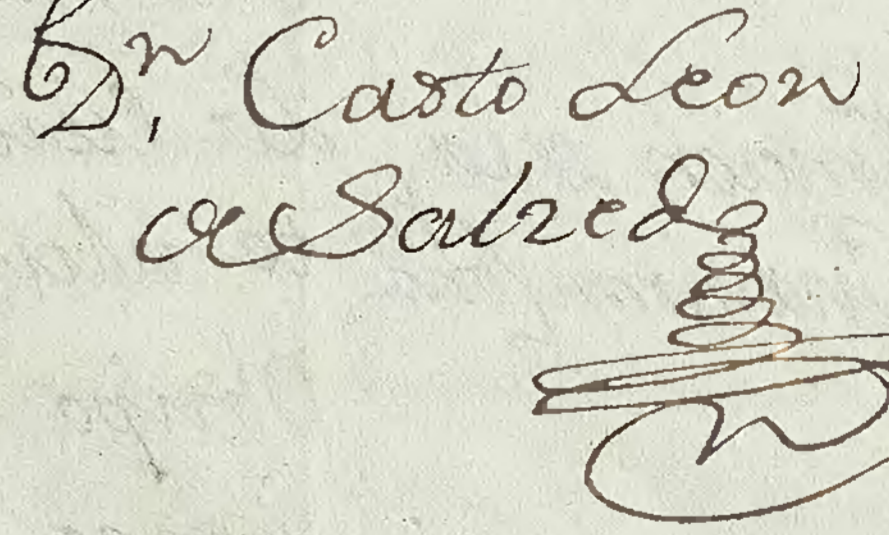 Dⁿ. Casto Leon
de Salzedo